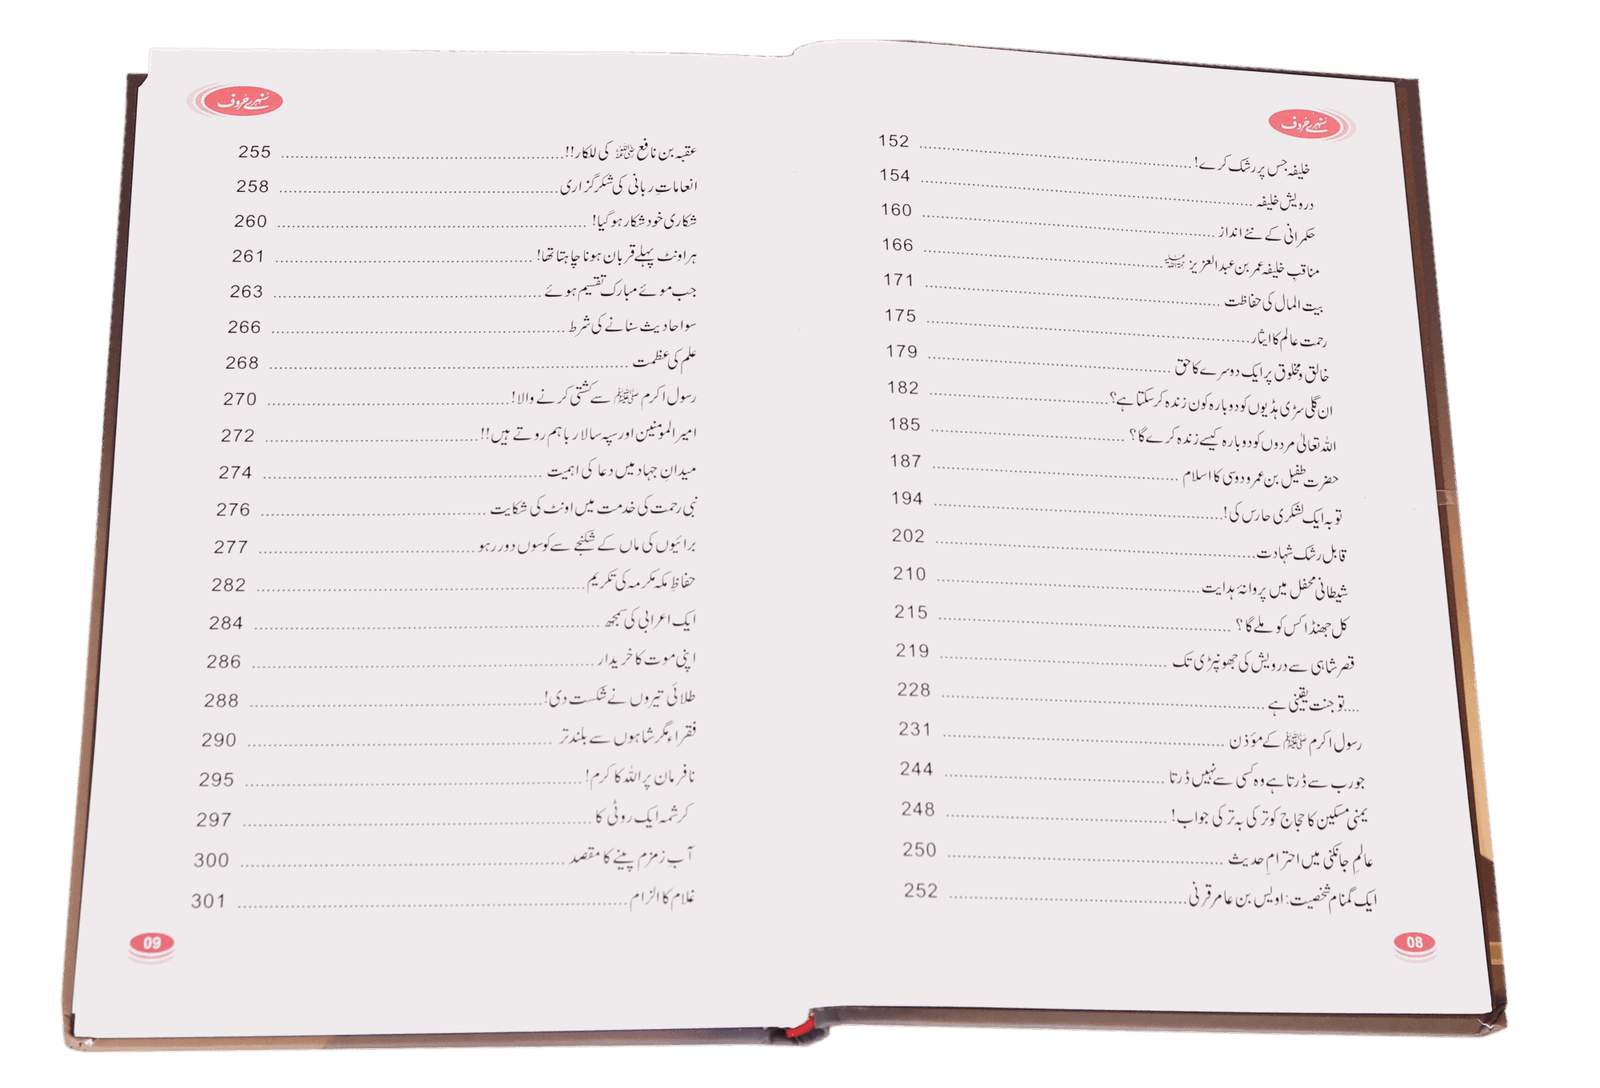 سنہرے حروف
خلیفہ جس پر رشک کرے! 152
درویش خلیفہ 154
حکمرانی کے نئے انداز 160
مناقبِ خلیفہ عمر بن عبدالعزیز 166
بیت المال کی حفاظت 171
رحمت عالم کا ایثار 175
خالق و مخلوق پر ایک دوسرے کا حق 179
ان گلی سڑی ہڈیوں کو دوبارہ کون زندہ کر سکتا ہے؟ 182
اللہ تعالیٰ مردوں کو دوبارہ کیسے زندہ کرے گا؟ 185
حضرت طفیل بن عمرو دوسی کا اسلام 187
توبہ ایک لشکری حارس کی! 194
قابل رشک شہادت 202
شیطانی محفل میں پروانۂ ہدایت 210
کل جھنڈا کس کو ملے گا؟ 215
قصر شاہی سے درویش کی جھونپڑی تک 219
....تو جنت یقینی ہے 228
رسول اکرم ﷺ کے مؤذن 231
جو رب سے ڈرتا ہے وہ کسی سے نہیں ڈرتا 244
یمنی مسکین کا حجاج کو ترکی بہ ترکی جواب! 248
عالمِ جانکنی میں احترامِ حدیث 250
ایک گمنام شخصیت: اویس بن عامر قرنی 252
08
سنہرے حروف
عقبہ بن نافع کی للکار!! 255
انعاماتِ ربانی کی شکرگزاری 258
شکاری خود شکار ہوگیا! 260
ہر اونٹ پہلے قربان ہونا چاہتا تھا! 261
جب موئے مبارک تقسیم ہوئے 263
سو احادیث سنانے کی شرط 266
علم کی عظمت 268
رسول اکرم ﷺ سے کشتی کرنے والا! 270
امیر المومنین اور سپہ سالار باہم روتے ہیں!! 272
میدانِ جہاد میں دعا کی اہمیت 274
نبی رحمت کی خدمت میں اونٹ کی شکایت 276
برائیوں کی ماں کے شکنجے سے کوسوں دور رہو 277
حفاظِ مکہ مکرمہ کی تکریم 282
ایک اعرابی کی سمجھ 284
اپنی موت کا خریدار 286
طلائی تیروں نے شکست دی! 288
فقراء مگر شاہوں سے بلند تر 290
نافرمان پر اللہ کا کرم! 295
کرشمہ ایک روٹی کا 297
آب زمزم پینے کا مقصد 300
غلام کا الزام 301
09